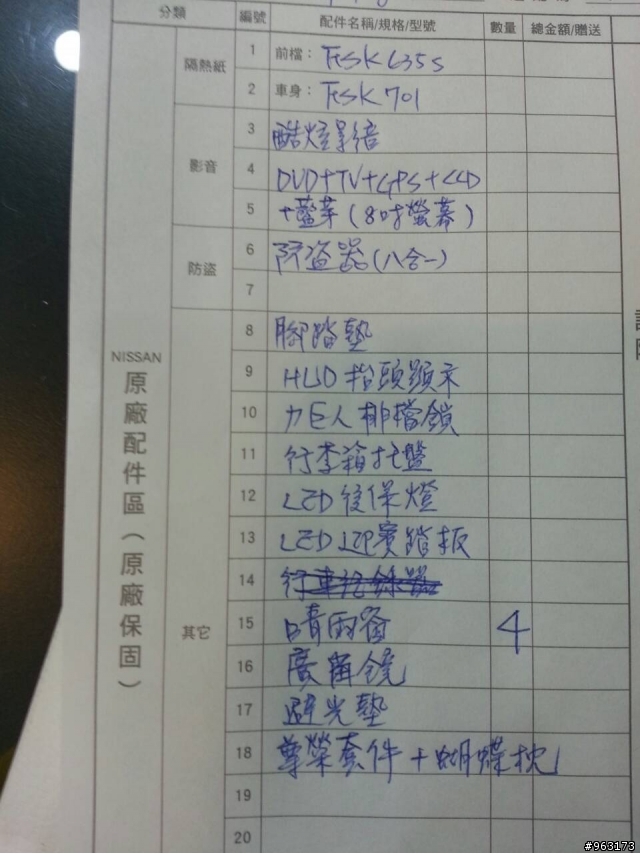 分類 編號 配件名稱/規格/型號 數量 總金額/贈送
NISSAN 原廠配件區(原廠保固)
隔熱紙
1 前檔: FSK 635s
2 車身: FSK 701
影音
3 酷炫影音
4 DVD+TV+GPS+CCD
5 +藍芽(8吋螢幕)
防盜
6 防盜器(八合一)
7
其它
8 腳踏墊
9 HUD 抬頭顯示
10 力巨人排檔鎖
11 行李箱托盤
12 LED 後保燈
13 LED 迎賓踏板
14 行車紀錄器
15 晴雨窗 4
16 廣角鏡
17 避光墊
18 尊榮套件+蝴蝶枕
19
20
#963173